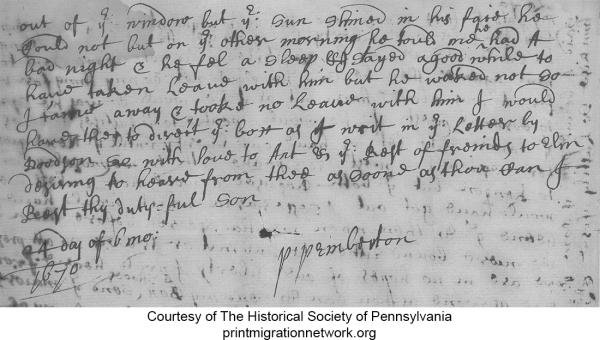 out of yͤ: window but yͤ: Sun Shined in his face he
Could not but on yͤ: other morning he tould me he had A
bad night & he fel a Sleep & I Stayed a good while to
have taken Leave with him but he waked not So
I came away & tooke no Leave with him I would
have thee to direct yͤ: box as I writ in yͤ: Letter by
with love to Ant & yͤ: Rest of freinds
desiring to heare from thee as Soone as thou Can I
Rest thy duty-ful Son
24 day of 6 mo:
1670
P: Pemberton
Courtesy of The Historical Society of Pennsylvania
printmigrationnetwork.org